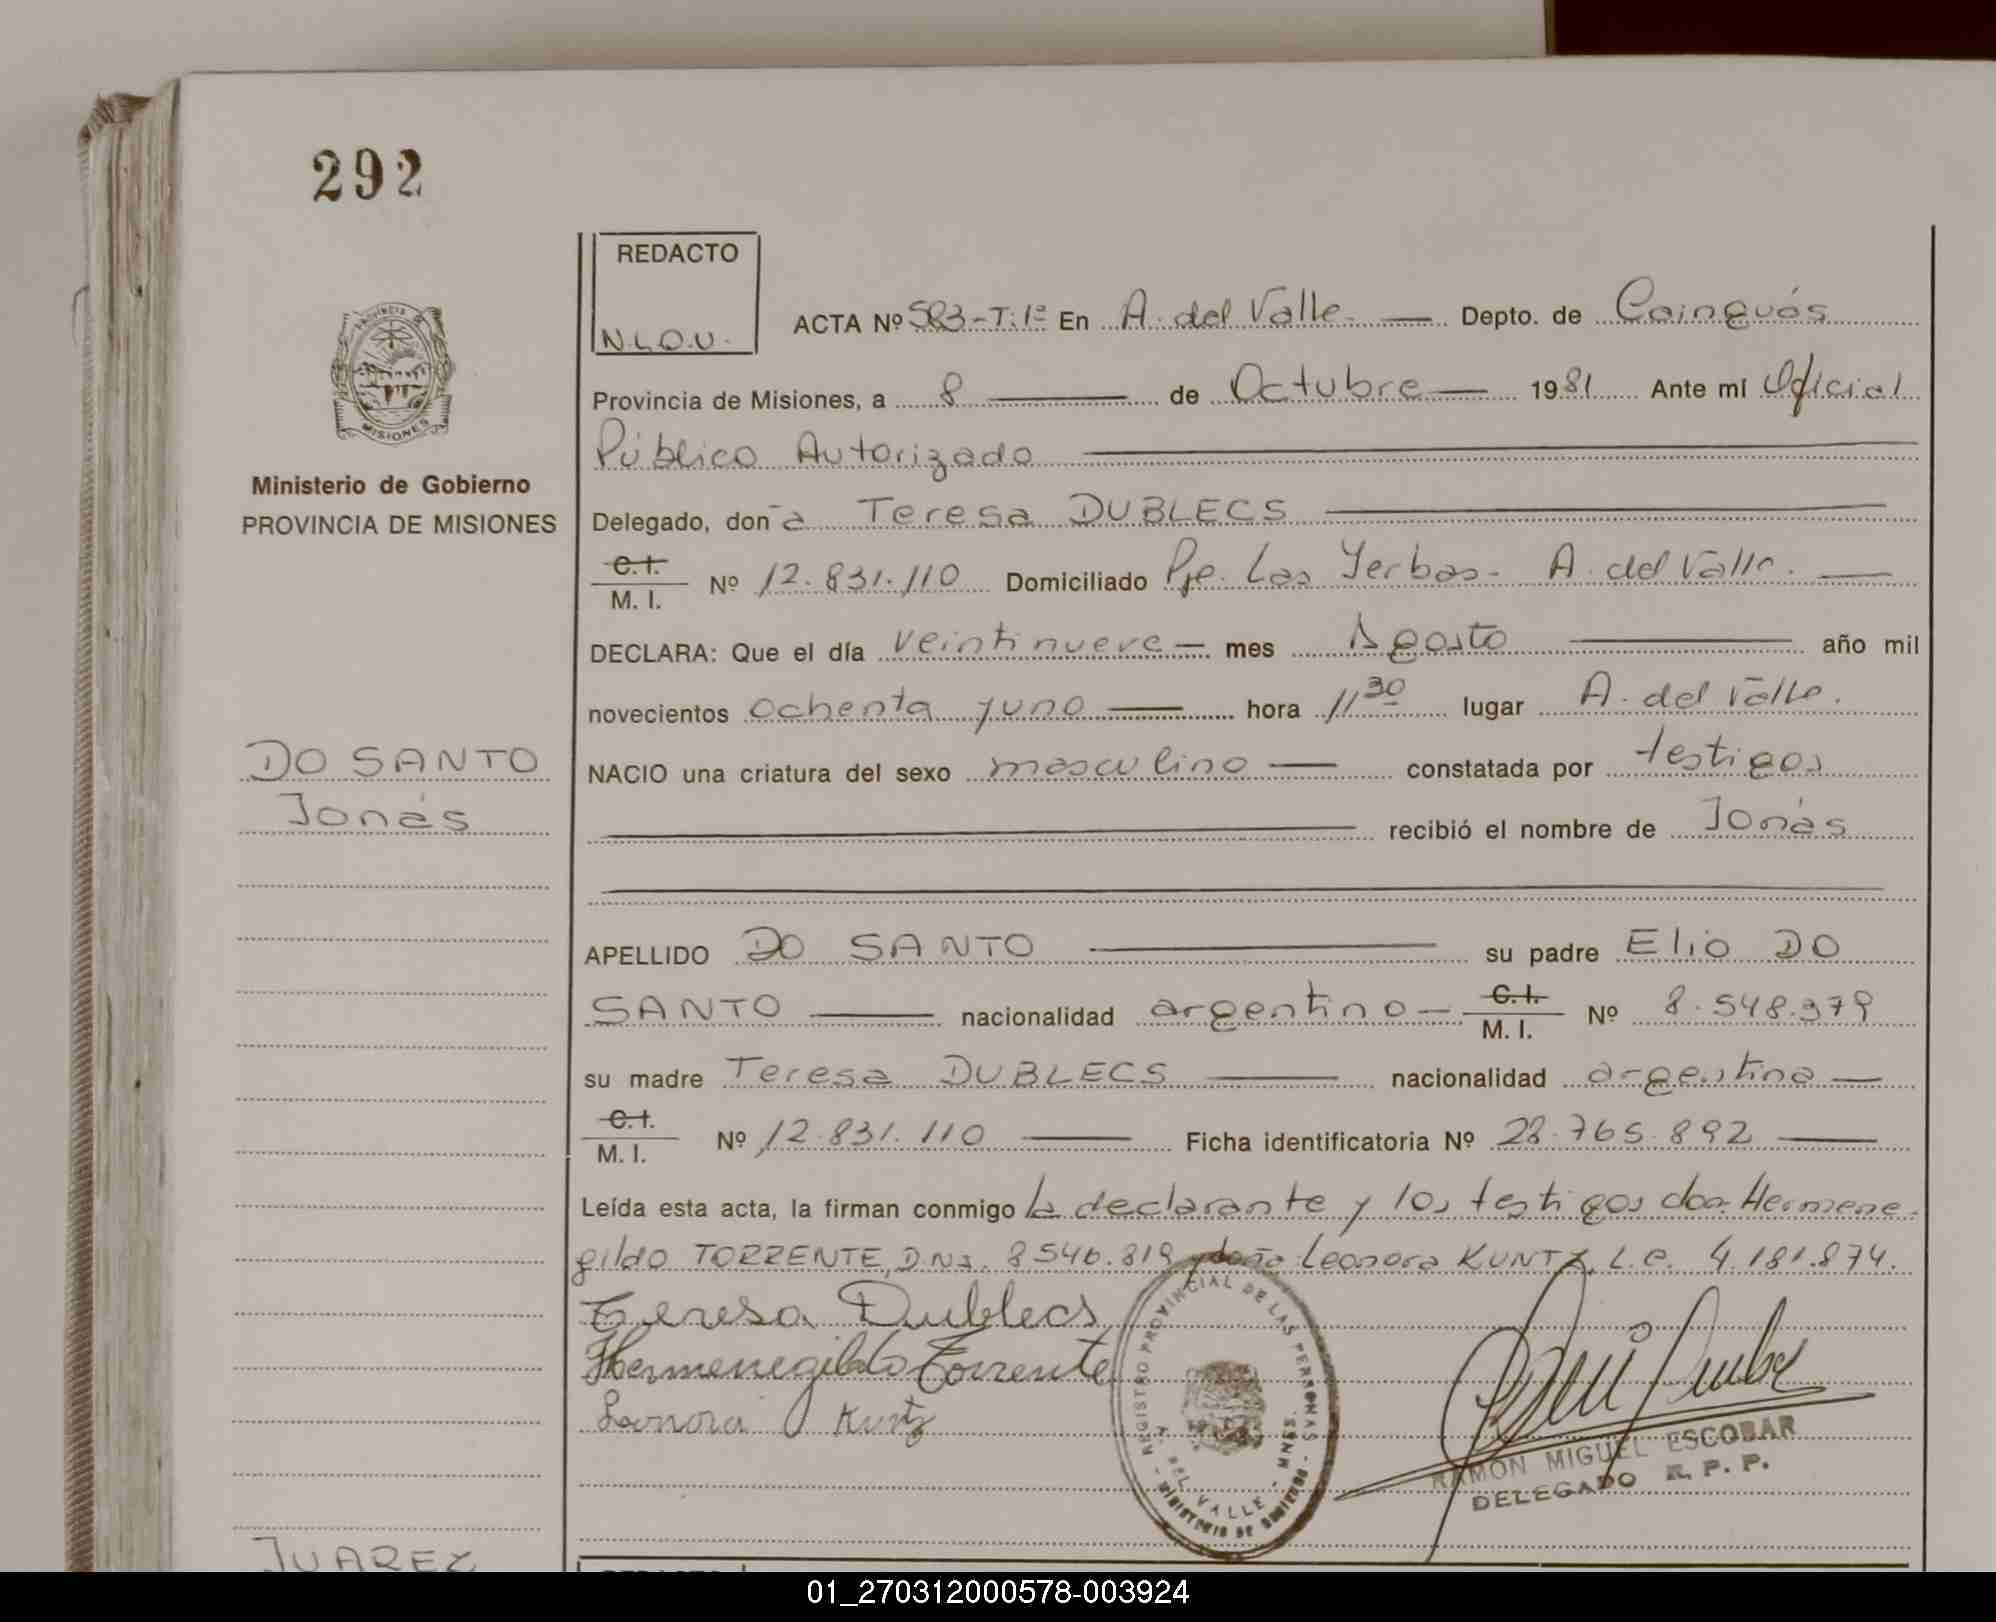 292
REDACTO
N.L.O.U.
ACTA Nº 583-T.1º En A. del Valle. Depto. de Cainguás
PROVINCIA DE MISIONES
Provincia de Misiones, a 8 de Octubre 1981 Ante mí Oficial
Público Autorizado
Ministerio de Gobierno
PROVINCIA DE MISIONES
Delegado, doña Teresa DUBLECS
C.I. M. I. Nº 12.831.110 Domiciliado Pje. Las Yerbas. A. del Valle.
DECLARA: Que el día veintinueve mes Agosto año mil
novecientos ochenta y uno hora 11 30 lugar A. del Valle.
DO SANTO
Jonás
NACIO una criatura del sexo masculino constatada por testigos
recibió el nombre de Jonás
APELLIDO DO SANTO su padre Elio DO
SANTO nacionalidad argentino C.I. M. I. Nº 8.548.379
su madre Teresa DUBLECS nacionalidad argentina
C.I. M. I. Nº 12.831.110 Ficha identificatoria Nº 28.765.892
Leída esta acta, la firman conmigo la declarante y los testigos don Hermene-
gildo TORRENTE, D.N.I. 8546.819 y doña Leonora KUNTZ, L.C. 4.181.874.
Teresa Dublecs
Hermenegildo Torrente
Leonora Kuntz
REGISTRO PROVINCIAL DE LAS PERSONAS
A. DEL VALLE - MNES.
MINISTERIO DE GOBIERNO
RAMON MIGUEL ESCOBAR
DELEGADO R. P. P.
JUAREZ
01_270312000578-003924